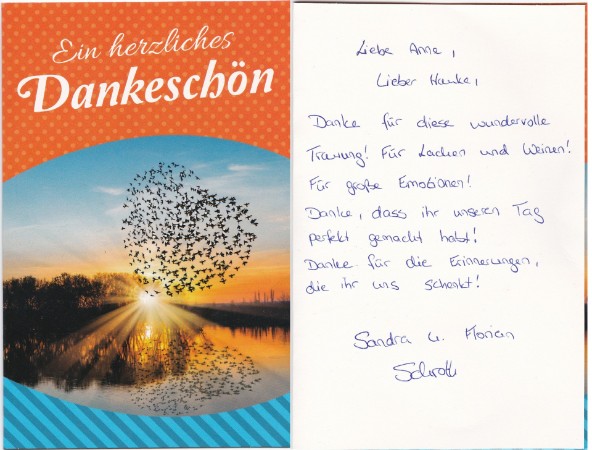 Ein herzliches
Dankeschön
Liebe Anne,
Lieber Hauke,
Danke für diese wundervolle
Trauung! Für Lachen und Weinen!
Für große Emotionen!
Danke, dass ihr unseren Tag
perfekt gemacht habt!
Danke für die Erinnerungen,
die ihr uns schenkt!
Sandra u. Florian
Schroth